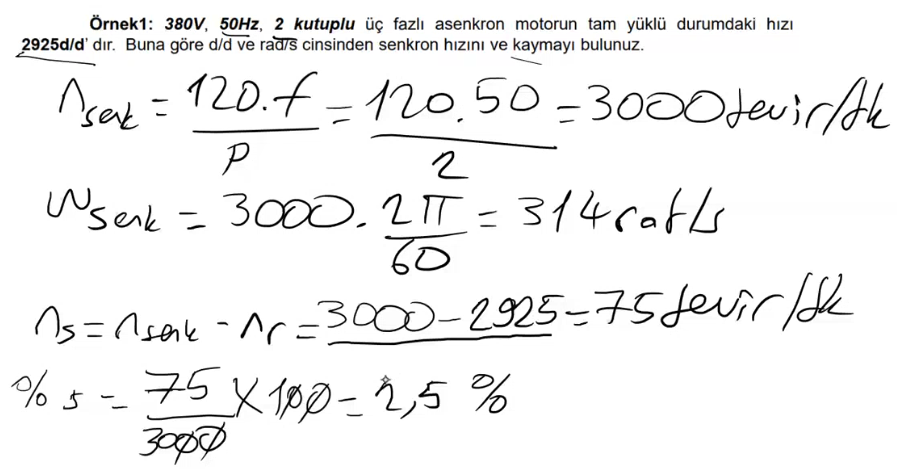 Örnek1: 380V, 50Hz, 2 kutuplu üç fazlı asenkron motorun tam yüklü durumdaki hızı
2925d/d' dır. Buna göre d/d ve rad/s cinsinden senkron hızını ve kaymayı bulunuz.
nsenk = 120.f/p = 120.50/2 = 3000 devir/dk
wsenk = 3000 . 2π/60 = 314 rad/s
ns = nsenk - nr = 3000 - 2925 = 75 devir/dk
% s = 75/3000 x 100 = 2,5 %